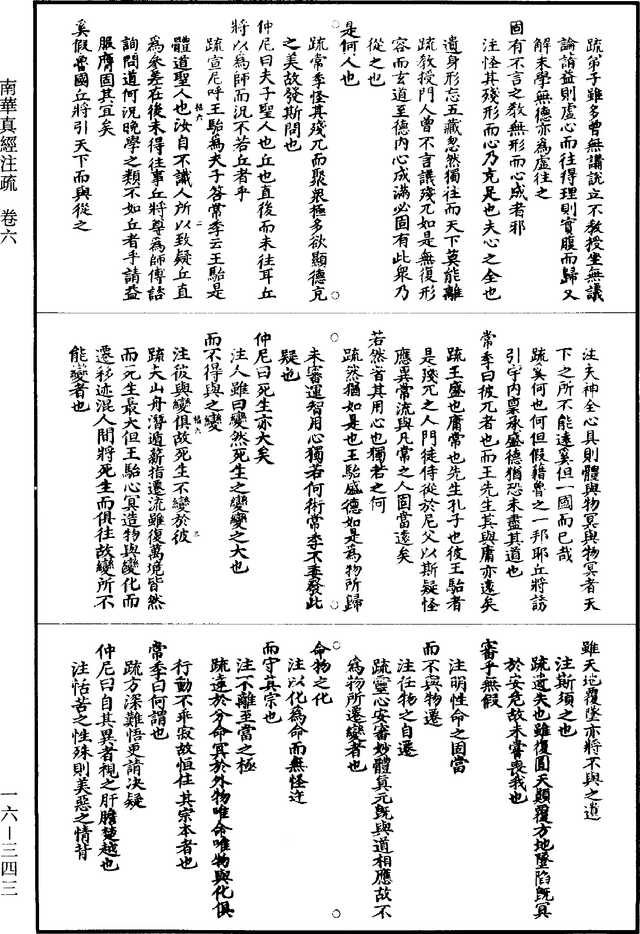 南華真經注疏 卷六
疏弟子雖多曾無講說立不教授坐無議
論請益則虛心而往得理則實腹而歸又
解未學無德亦為虛往之
固有不言之教無形而心成者邪
注怪其殘形而心乃充是也夫心之全也
遺身形忘五藏忽然獨往而天下莫能離
疏教授門人曾不言議殘兀如是無復形
容而玄道至德內心成滿必固有此眾乃
從之也
是何人也
疏常季怪其殘兀而聚眾極多欲顯德充
之美故發斯問也
仲尼曰夫子聖人也丘也直後而未往耳丘
將以為師而況不若丘者乎
疏宣尼呼王駘為夫子答常季云王駘是
體道聖人也汝自不識人所以致疑丘直
為參差在後未得往事丘將尊為師傅諮
詢問道何況晚學之類不如丘者乎請益
服膺固其宜矣
奚假魯國丘將引天下而與從之
注夫神全心具則體與物冥與物冥者天
下之所不能遠奚但一國而已哉
疏奚何也何但假藉魯之一邦耶丘將誘
引宇內稟承盛德猶恐未盡其道也
常季曰彼兀者也而王先生其與庸亦遠矣
疏王盛也庸常也先生孔子也彼王駘者
是殘兀之人門徒侍從於尼父以斯疑怪
應異常流與凡常之人固當遠矣
若然者其用心也獨若之何
疏然猶如是也王駘盛德如是為物所歸
未審運智用心獨若何術常季不達發此
疑也
仲尼曰死生亦大矣
注人雖日變然死生之變變之大也
而不得與之變
注彼與變俱故死生不變於彼
疏夫山舟潛遁薪指遷流雖復萬境皆然
而死生最大但王駘心冥造物與變化而
遷移迹混人間將死生而俱往故變所不
能變者也
雖天地覆墜亦將不與之遺
注斯須之也
疏遺失也雖復圓天顛覆方地墜陷既冥
於安危故未嘗喪我也
審乎無假
注明性命之固當
而不與物遷
注任物之自遷
疏靈心安審妙體真元既與道相應故不
為物所遷變者也
命物之化
注以化為命而無怪迕
而守其宗也
注不離至當之極
疏達於分命冥於外物唯命唯物與化俱
行動不乖寂故恒住其宗本者也
常季曰何謂也
疏方深難悟更請決疑
仲尼曰自其異者視之肝膽楚越也
注恬苦之性殊則美惡之情背
一六—三四三